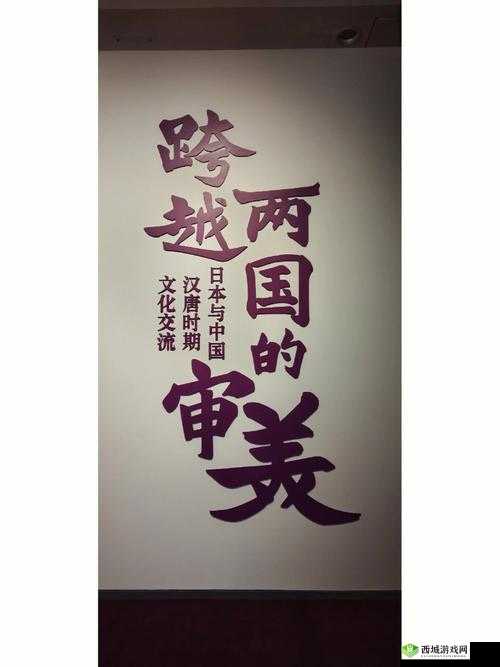 跨越
两国的
审美
日本与中国
汉唐时期
文化交流
西城游戏网